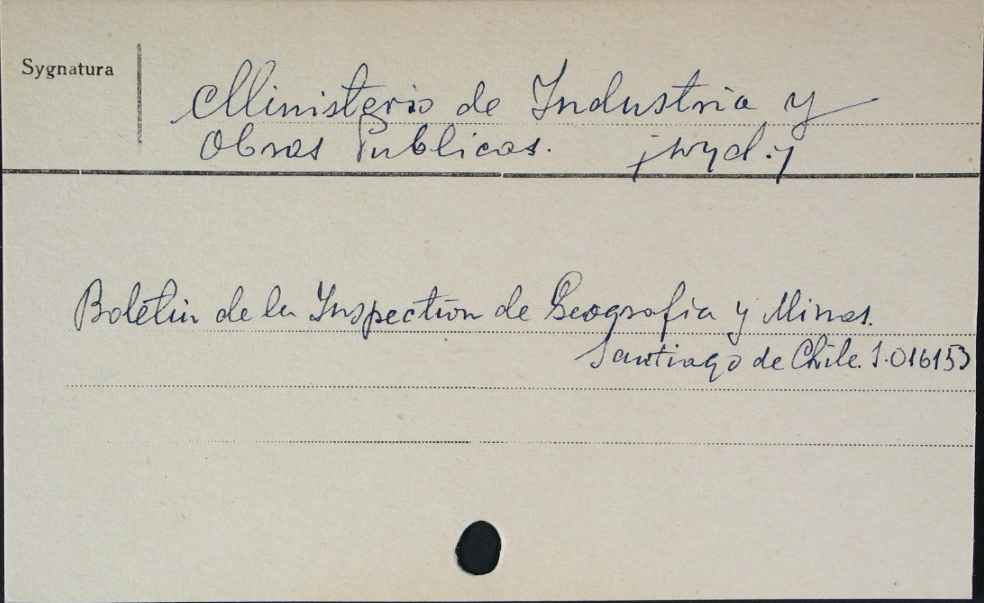 Sygnatura
Ministerio de Industria y
Obras Publicas. /wyd./
Boletin de la Inspection de Geografia y Minas.
Santiago de Chile. S.016153